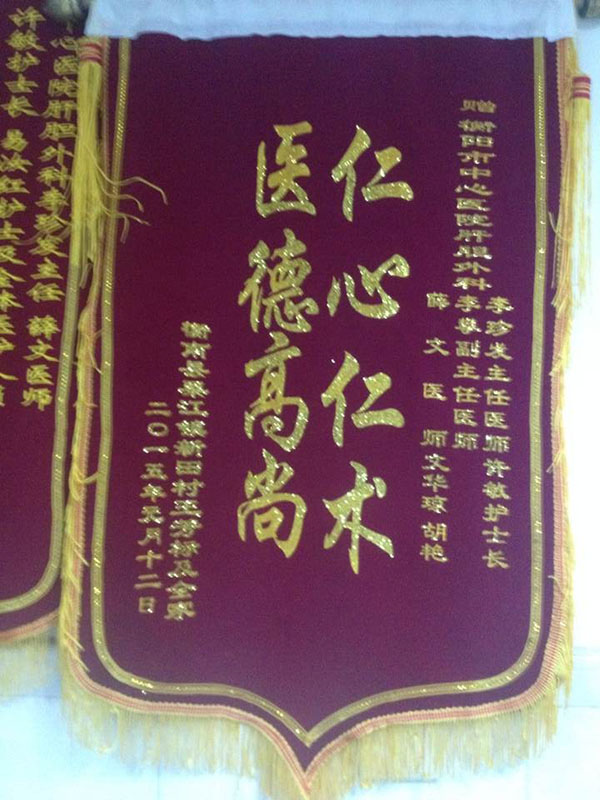 赠 衡阳市中心医院肝胆外科
李珍发主任医师 许敏护士长
李黎副主任医师
薛文医师 文华琼 胡艳
仁心仁术
医德高尚
衡南县 江镇新田村王 及全家
二〇一五年元月十二日
心医院肝胆外科李珍发主任 薛文医师
许敏护士长 易汝红护士及全体医护人员